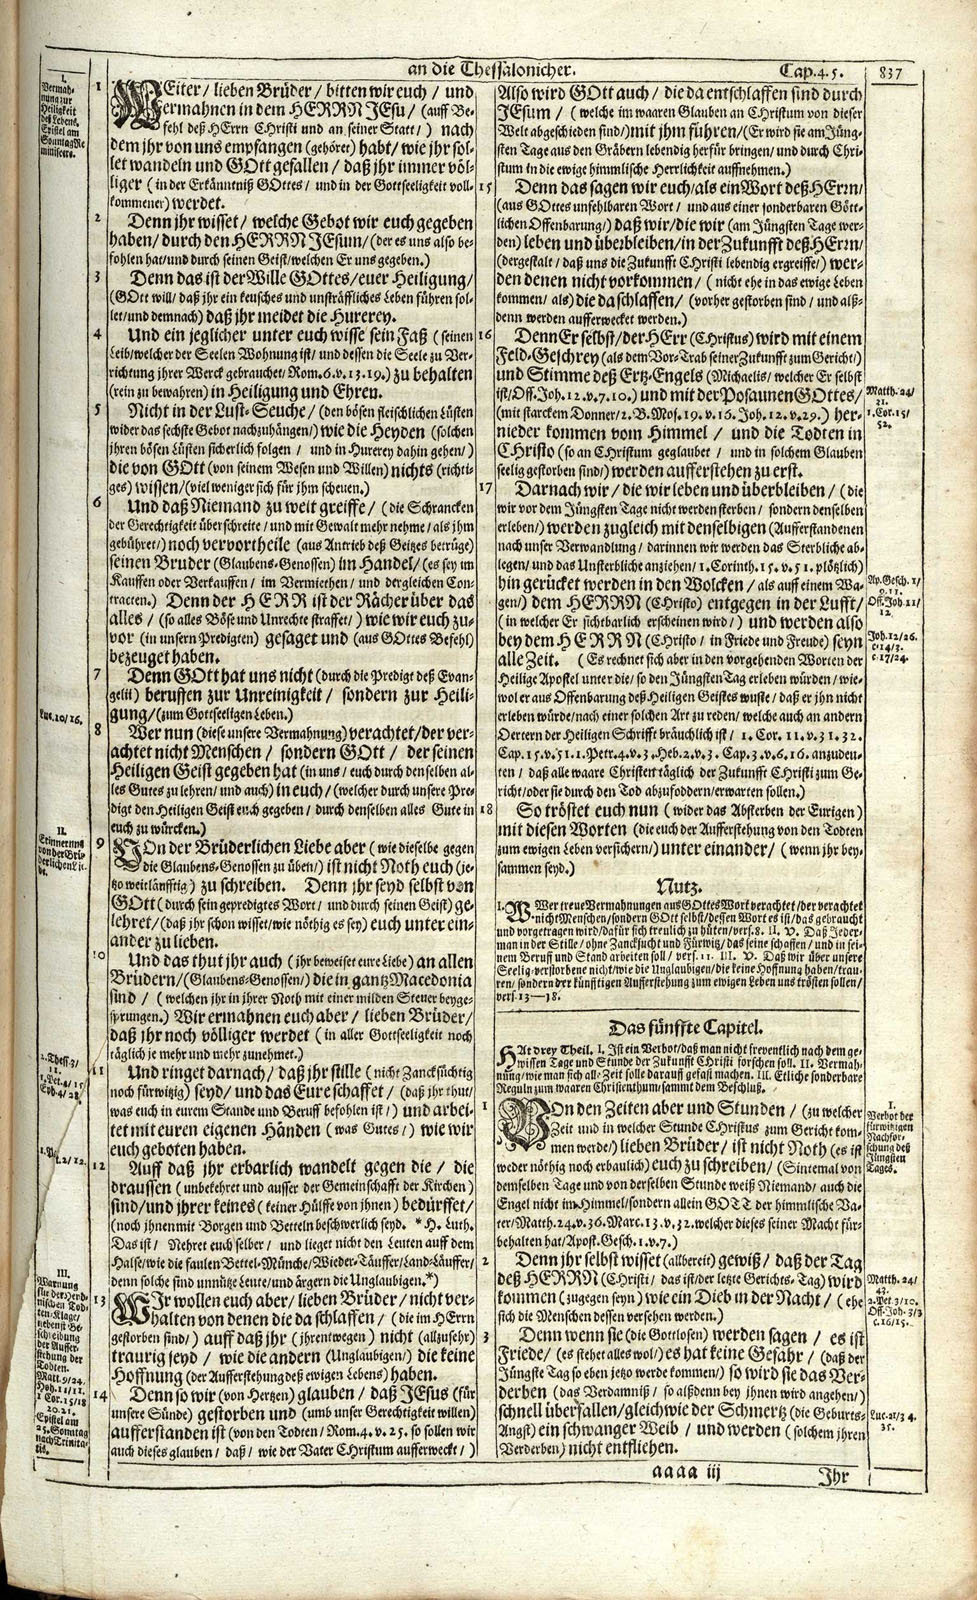 an die Thessalonicher.
Cap. 4. 5.
837
I.
Vermah-
nung zur
Heiligkeit
deß Lebens.
Epistel am
Sonntag Re-
miniscere.
1 WEiter / lieben Brüder / bitten wir euch / und
ermahnen in dem HERRN JEsu / (auff Be-
fehl deß HErrn CHristi und an seiner Statt /) nach
dem jhr von uns empfangen (gehöret) habt / wie jhr sol-
let wandeln und GOtt gefallen / daß jhr immer völ-
liger (in der Erkänntniß GOttes / und in der Gottseeligkeit voll-
kommener) werdet.
2 Denn jhr wisset / welche Gebot wir euch gegeben
haben / durch den HERRN JEsum / (der es uns also be-
fohlen hat / und durch seinen Geist / welchen Er uns gegeben.)
3 Denn das ist der Wille GOttes / euer Heiligung /
(GOtt will / daß jhr ein keusches und unsträffliches Leben führen sol-
let / und demnach) daß jhr meidet die Hurerey.
4 Und ein jeglicher unter euch wisse sein Faß (seinen
Leib / welcher der Seelen Wohnung ist / und dessen die Seele zu Ver-
richtung jhrer Werck gebrauchet / Rom. 6. v. 13. 19.) zu behalten
(rein zu bewahren) in Heiligung und Ehren.
5 Nicht in der Lust-Seuche / (den bösen fleischlichen Lüsten
wider das sechste Gebot nachzuhängen /) wie die Heyden (solchen
jhren bösen Lüsten sicherlich folgen / und in Hurerey dahin gehen /)
die von GOtt (von seinem Wesen und Willen) nichts (richti-
ges) wissen / (viel weniger sich für jhm scheuen.)
6 Und daß Niemand zu weit greiffe / (die Schrancken
der Gerechtigkeit überschreite / und mit Gewalt mehr nehme / als jhm
gebühret /) noch vervortheile (aus Antrieb deß Geitzes betrüge)
seinen Bruder (Glaubens-Genossen) im Handel / (es sey im
Kauffen oder Verkauffen / im Vermiethen / und dergleichen Con-
tracten.) Denn der HERR ist der Rächer über das
alles / (so alles Böse und Unrechte straffet /) wie wir euch zu-
vor (in unsern Predigten) gesaget und (aus GOttes Befehl)
bezeuget haben.
7 Denn GOtt hat uns nicht (durch die Predigt deß Evan-
gelii) beruffen zur Unreinigkeit / sondern zur Heili-
gung / (zum Gottseeligen Leben.)
Luc. 10 / 16.
8 Wer nun (diese unsere Vermahnung) verachtet / der ver-
achtet nicht Menschen / sondern GOtt / der seinen
Heiligen Geist gegeben hat (in uns / euch durch denselben al-
les Gutes zu lehren / und auch) in euch / (welcher durch unsere Pre-
digt den Heiligen Geist euch gegeben / durch denselben alles Gute in
euch zu würcken.)
II.
Erinnerung
von der Brü-
derlichen Lie-
be.
9 VOn der Brüderlichen Liebe aber (wie dieselbe gegen
die Glaubens-Genossen zu üben /) ist nicht Noth euch (je-
tzo weitläufftig) zu schreiben. Denn jhr seyd selbst von
GOtt (durch sein gepredigtes Wort / und durch seinen Geist) ge-
lehret / (daß jhr schon wisset / wie nöthig es sey) euch unter ein-
ander zu lieben.
10 Und das thut jhr auch (jhr beweiset eure Liebe) an allen
Brüdern / (Glaubens-Genossen) die in gantz Macedonia
sind / (welchen jhr in jhrer Noth mit einer milden Steuer beyge-
sprungen.) Wir ermahnen euch aber / lieben Brüder /
daß jhr noch völliger werdet (in aller Gottseeligkeit noch
täglich je mehr und mehr zunehmet.)
2. Thess. 3 /
11.
1. Pet. 4 / 15
Eph. 4 / 28
11 Und ringet darnach / daß jhr stille (nicht Zancksüchtig
noch fürwitzig) seyd / und das Eure schaffet / (daß jhr thut /
was euch in eurem Stande und Beruff befohlen ist /) und arbei-
tet mit euren eigenen Händen (was Gutes /) wie wir
euch geboten haben.
12 Auff daß jhr erbarlich wandelt gegen die / die
draussen (unbekehret und ausser der Gemeinschafft der Kirchen)
sind / und jhrer keines (keiner Hülffe von jhnen) bedürffet /
(noch jhnen mit Borgen und Betteln beschwerlich seyd. *H. Luth.
Das ist / Nehret euch selber / und lieget nicht den Leuten auff dem
Halse / wie die faulen Bettel-Münche / Wieder-Täuffer / Land-Läuffer /
denn solche sind unnütze Leute / und ärgern die Unglaubigen.*)
III.
Warnung
für der Heyd-
nischen Tod-
ten-Klage /
nebenst Be-
schreibung
der Auffer-
stehung der
Todten.
Matt. 9 / 24.
Joh. 11 / 11.
1 Cor. 15 / 18
20. 21.
Epistel am
25. Sonntag
nach Trinita-
tis.
13 WJr wollen euch aber / lieben Brüder / nicht ver-
halten von denen die da schlaffen / (die im HErrn
gestorben sind /) auff daß jhr (jhrentwegen) nicht (allzusehr)
traurig seyd / wie die andern (Unglaubigen /) die keine
Hoffnung (der Aufferstehung deß ewigen Lebens) haben.
14 Denn so wir (von Hertzen) glauben / daß JEsus (für
unsere Sünde) gestorben und (umb unser Gerechtigkeit willen)
aufferstanden ist (von den Todten / Rom. 4. v. 25. so sollen wir
auch dieses glauben / daß / wie der Vater CHristum aufferweckt /)
Also wird GOtt auch / die da entschlaffen sind durch
JEsum / (welche im waaren Glauben an CHristum von dieser
Welt abgeschieden sind /) mit jhm führen / (Er wird sie am Jüng-
sten Tage aus den Gräbern lebendig herfür bringen / und durch Chri-
stum in die ewige himmlische Herrlichkeit auffnehmen.)
15 Denn das sagen wir euch / als ein Wort deß HErrn /
(aus GOttes unfehlbaren Wort / und aus einer sonderbaren Gött-
lichen Offenbarung /) daß wir / die wir (am Jüngsten Tage wer-
den) leben und überbleiben / in der Zukunfft deß HErrn /
(dergestalt / daß uns die Zukunfft CHristi lebendig ergreiffe /) wer-
den denen nicht vorkommen / (nicht ehe in das ewige Leben
kommen / als) die da schlaffen / (vorher gestorben sind / und alß-
denn werden aufferwecket werden.)
16 Denn Er selbst / der HErr (CHristus) wird mit einem
Feld-Geschrey (als dem Vor-Trab seiner Zukunfft zum Gericht /)
und Stimme deß Ertz-Engels (Michaelis / welcher Er selbst
ist / Off. Joh. 12. v. 7. 10.) und mit der Posaunen GOttes /
(mit starckem Donner / 2. B. Mos. 19. v. 16. Joh. 12. v. 29.) her-
nieder kommen vom Himmel / und die Todten in
CHristo (so an CHristum geglaubet / und in solchem Glauben
seelig gestorben sind /) werden aufferstehen zu erst.
Matth. 24 /
21.
1. Cor. 15 /
52.
17 Darnach wir / die wir leben und überbleiben / (die
wir vor dem Jüngsten Tage nicht werden sterben / sondern denselben
erleben /) werden zugleich mit denselbigen (Aufferstandenen
nach unser Verwandlung / darinnen wir werden das Sterbliche ab-
legen / und das Unsterbliche anziehen / 1. Corinth. 15. v. 51. plötzlich)
hin gerücket werden in den Wolcken / als auff einem Wa-
gen /) dem HERRN (CHristo) entgegen in der Lufft /
(in welcher Er sichtbarlich erscheinen wird /) und werden also
bey dem HERRN (CHristo / in Friede und Freude) seyn
alle Zeit. (Es rechnet sich aber in den vorgehenden Worten der
Heilige Apostel unter die / so den Jüngsten Tag erleben würden / wie-
wol er aus Offenbarung deß Heiligen Geistes wuste / daß er jhn nicht
erleben würde / nach einer solchen Art zu reden / welche auch an andern
Oertern der Heiligen Schrifft bräuchlich ist / 1. Cor. 11. v. 31. 32.
Cap. 15. v. 51. 1. Petr. 4. v. 3. Heb. 2. v. 3. Cap. 3. v. 6. 16. anzudeu-
ten / daß alle waare Christen täglich der Zukunfft CHristi zum Ge-
richt / oder sie durch den Tod abzufoddern / erwarten sollen.)
Ap. Gesch. 1 /
9. 11.
Off. Joh. 11 /
12
Joh. 12 / 26.
c. 14 / 3.
c. 17 / 24.
18 So tröstet euch nun (wider das Absterben der Eurigen)
mit diesen Worten (die euch der Aufferstehung von den Todten
zum ewigen Leben versichern /) unter einander / (wenn jhr bey-
sammen seyd.)
Nutz.
I. Wer treue Vermahnungen aus GOttes Wort verachtet / der verachtet
nicht Menschen / sondern GOtt selbst / dessen Wort es ist / das gebraucht
und vorgetragen wird / dafür sich treulich zu hüten / vers. 8. II. V. Daß Jeder-
man in der Stille / ohne Zancksucht und Fürwitz / das seine schaffen / und in sei-
nem Beruff und Stand arbeiten soll / vers. 11. III. V. Daß wir über unsere
Seelig-verstorbene nicht / wie die Unglaubigen / die keine Hoffnung haben / trau-
ren / sondern der künfftigen Aufferstehung zum ewigen Leben uns trösten sollen /
vers. 13—18.
Das fünffte Capitel.
HAt drey Theil. I. Ist ein Verbot / daß man nicht freventlich nach dem ge-
wissen Tage und Stunde der Zukunfft CHristi forschen soll. II. Vermah-
nung / wie man sich all-Zeit solle darauff gefast machen. III. Etliche sonderbare
Reguln zum waaren Christenthum / sammt dem Beschluß.
I.
Verbot der
fürwitzigen
Nachfor-
schung deß
Jüngsten
Tages.
1 VOn den Zeiten aber und Stunden / (zu welcher
Zeit und in welcher Stunde CHristus zum Gericht kom-
men werde /) lieben Brüder / ist nicht Noth (es ist
weder nöthig noch erbaulich) euch zu schreiben / (Sintemal von
demselben Tage und von derselben Stunde weiß Niemand / auch die
Engel nicht im Himmel / sondern allein GOTT der himmlische Va-
ter / Matth. 24. v. 36. Marc. 13. v. 32. welcher dieses seiner Macht für-
behalten hat / Apost. Gesch. 1. v. 7.)
2 Denn jhr selbst wisset (allbereit) gewiß / daß der Tag
deß HERRN (CHristi / das ist / der letzte Gerichts-Tag) wird
kommen (zugegen seyn) wie ein Dieb in der Nacht / (ehe
sich die Menschen dessen versehen werden.)
Matth. 24 /
43.
2. Pet. 3 / 10.
Off. Joh. 3 / 3
c. 16 / 15.
3 Denn wenn sie (die Gottlosen) werden sagen / es ist
Friede / (es stehet alles wol /) es hat keine Gefahr / (daß der
Jüngste Tag so eben jetzo werde kommen /) so wird sie das Ver-
derben (das Verdamniß / so alßdenn bey jhnen wird angehen /)
schnell überfallen / gleich wie der Schmertz (die Geburts-
Angst) ein schwanger Weib / und werden (solchem jhren
Verderben) nicht entfliehen.
Luc. 21 / 34.
35.
aaaa iij
Jhr